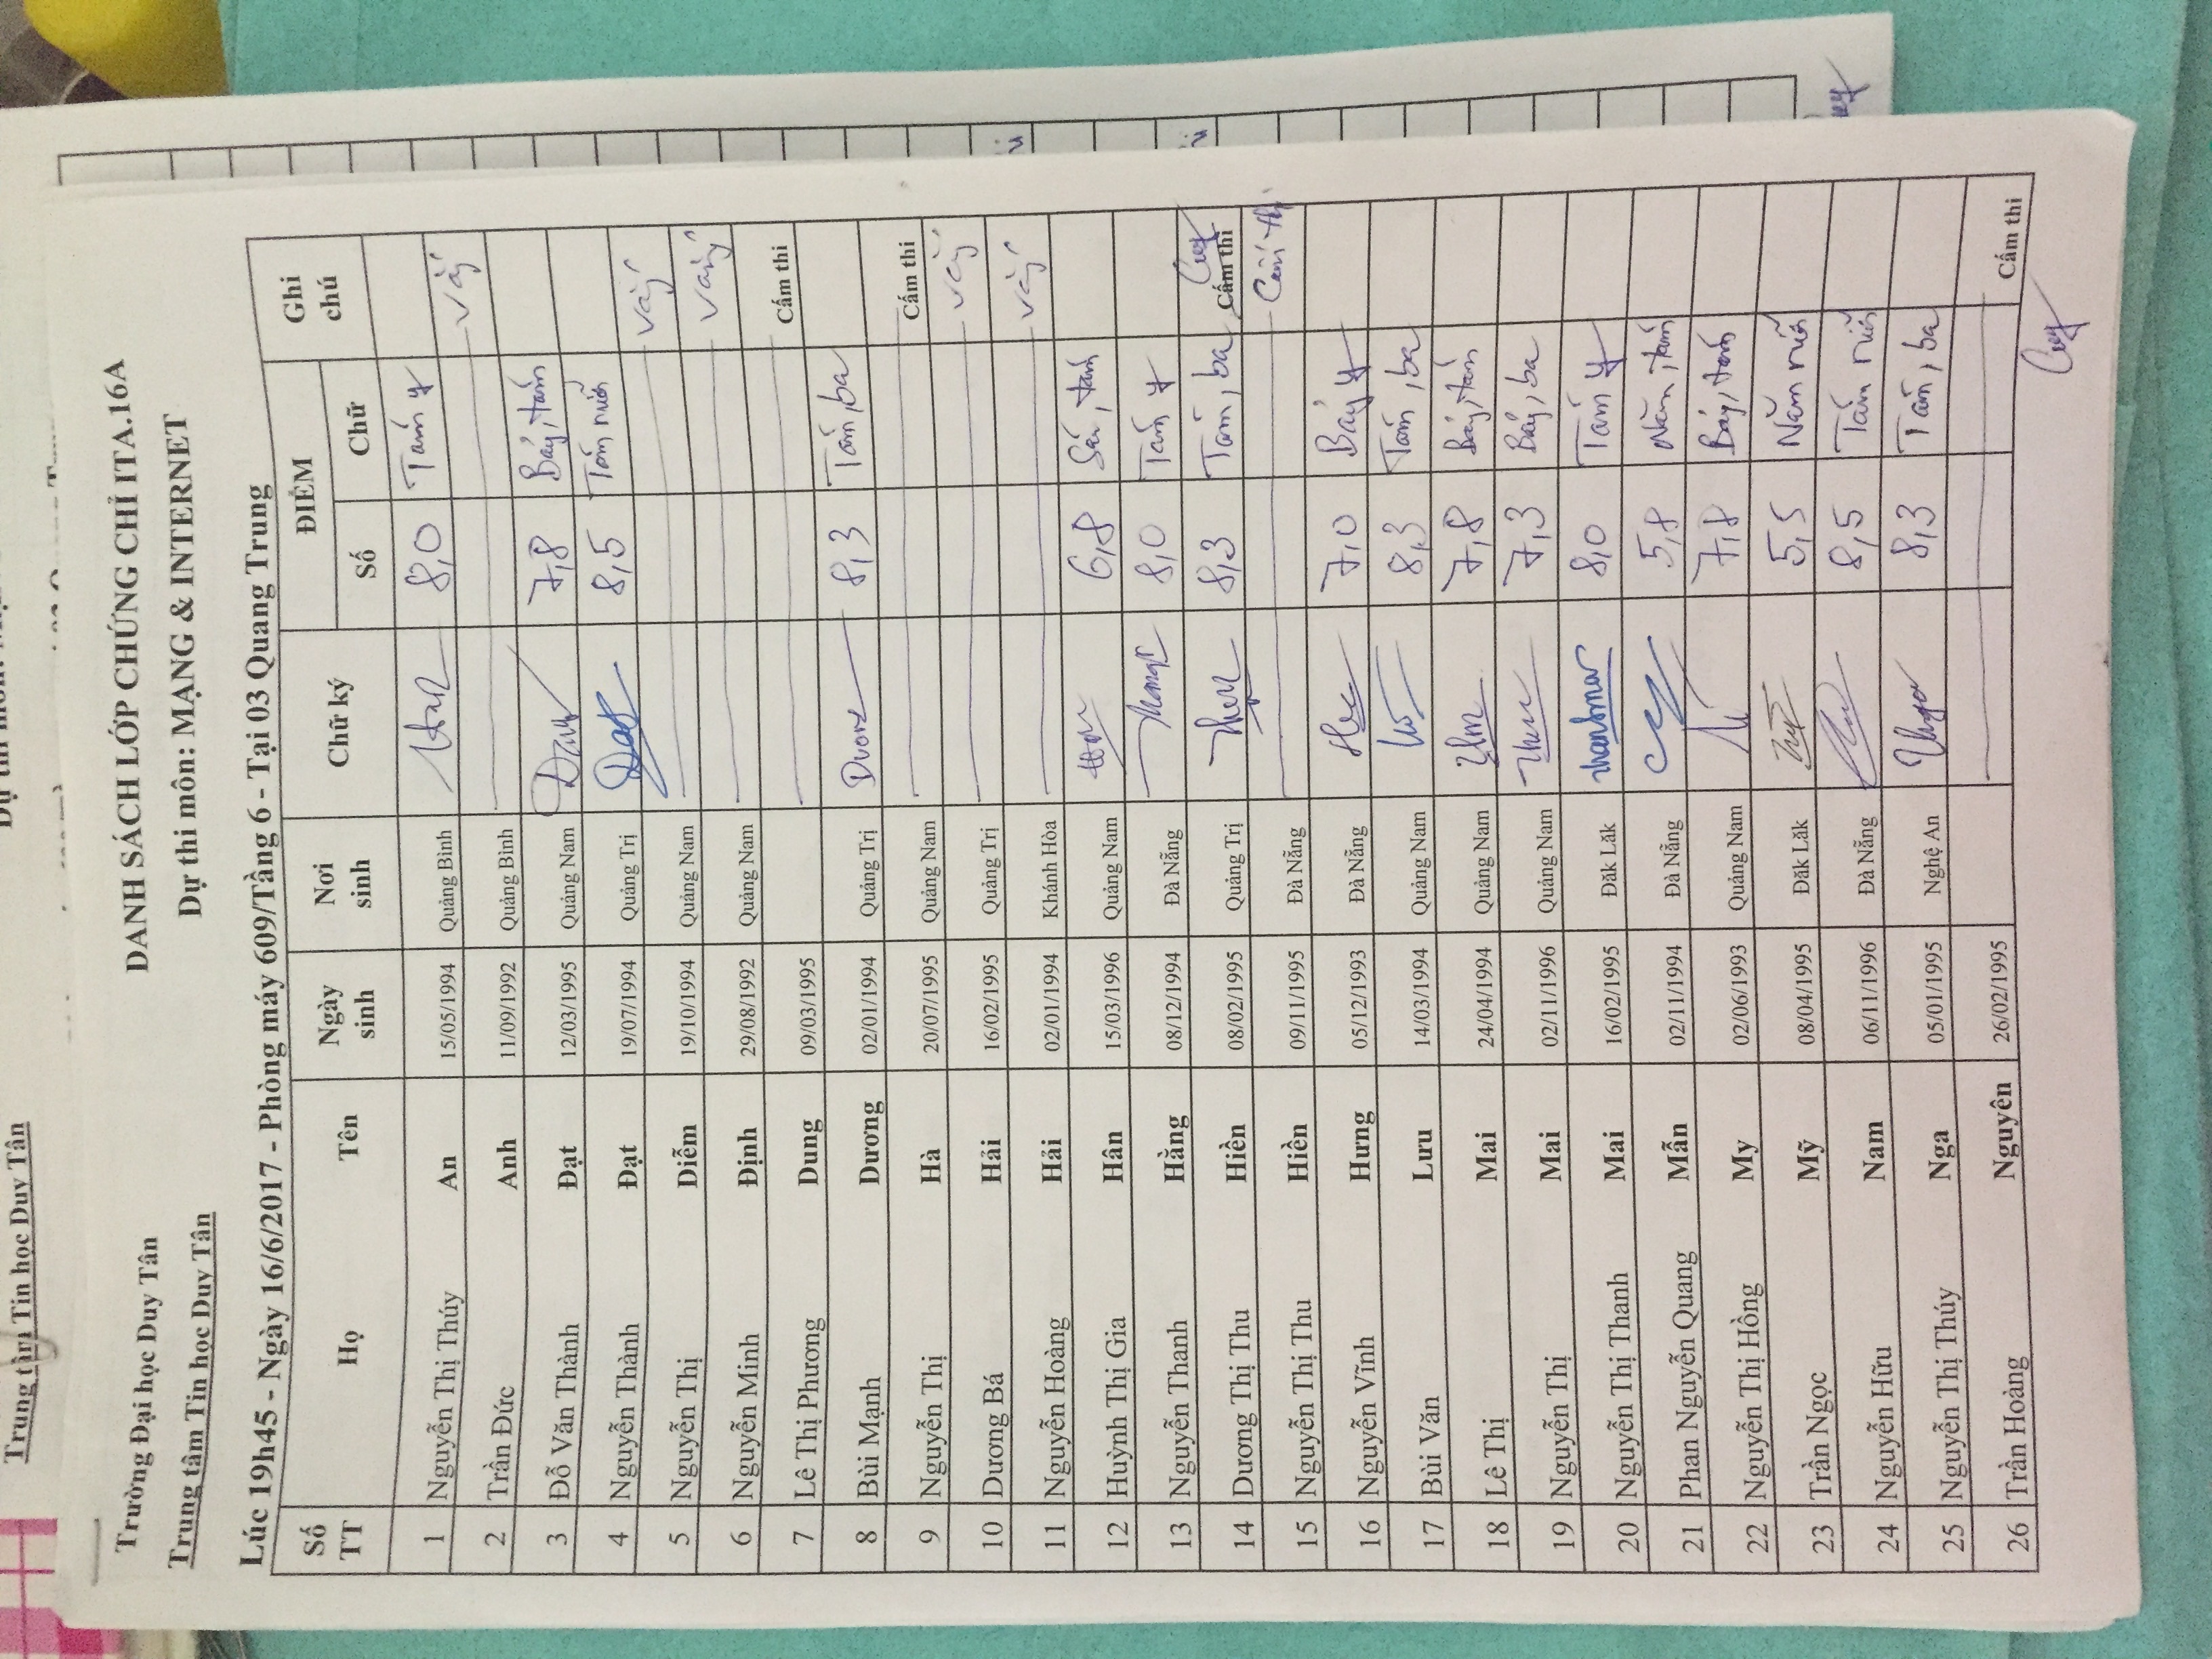 Trung tâm Tin học Duy Tân
Trường Đại học Duy Tân
DANH SÁCH LỚP CHỨNG CHỈ ITA.16A
Trung tâm Tin học Duy Tân
Dự thi môn: MẠNG & INTERNET
Lúc 19h45 - Ngày 16/6/2017 - Phòng máy 609/Tầng 6 - Tại 03 Quang Trung
Số TT Họ Tên Ngày sinh Nơi sinh Chữ ký ĐIỂM Ghi chú
Số Chữ
1 Nguyễn Thị Thúy An 15/05/1994 Quảng Bình 8,0 Tám
2 Trần Đức Anh 11/09/1992 Quảng Bình vắng
3 Đỗ Văn Thành Đạt 12/03/1995 Quảng Nam 7,8 Bảy, tám
4 Nguyễn Thành Đạt 19/07/1994 Quảng Trị Đạt 8,5 Tám rưỡi
5 Nguyễn Thị Diễm 19/10/1994 Quảng Nam vắng
6 Nguyễn Minh Định 29/08/1992 Quảng Nam vắng
7 Lê Thị Phương Dung 09/03/1995 Cấm thi
8 Bùi Mạnh Dương 02/01/1994 Quảng Trị 8,3 Tám, ba
9 Nguyễn Thị Hà 20/07/1995 Quảng Nam Cấm thi
10 Dương Bá Hải 16/02/1995 Quảng Trị vắng
11 Nguyễn Hoàng Hải 02/01/1994 Khánh Hòa vắng
12 Huỳnh Thị Gia Hân 15/03/1996 Quảng Nam 6,8 Sáu, tám
13 Nguyễn Thanh Hằng 08/12/1994 Đà Nẵng 8,0 Tám
14 Dương Thị Thu Hiền 08/02/1995 Quảng Trị 8,3 Tám, ba Cấm thi
15 Nguyễn Thị Thu Hiền 09/11/1995 Đà Nẵng Cấm thi
16 Nguyễn Vĩnh Hưng 05/12/1993 Đà Nẵng 7,0 Bảy
17 Bùi Văn Lưu 14/03/1994 Quảng Nam 8,3 Tám, ba
18 Lê Thị Mai 24/04/1994 Quảng Nam 7,8 Bảy, tám
19 Nguyễn Thị Mai 02/11/1996 Quảng Nam 7,3 Bảy, ba
20 Nguyễn Thị Thanh Mai 16/02/1995 Đăk Lăk 8,0 Tám
21 Phan Nguyễn Quang Mẫn 02/11/1994 Đà Nẵng 5,8 Năm, tám
22 Nguyễn Thị Hồng My 02/06/1993 Quảng Nam 7,8 Bảy, tám
23 Trần Ngọc Mỹ 08/04/1995 Đăk Lăk 5,5 Năm rưỡi
24 Nguyễn Hữu Nam 06/11/1996 Đà Nẵng 8,5 Tám rưỡi
25 Nguyễn Thị Thúy Nga 05/01/1995 Nghệ An 8,3 Tám, ba
26 Trần Hoàng Nguyên 26/02/1995 Cấm thi